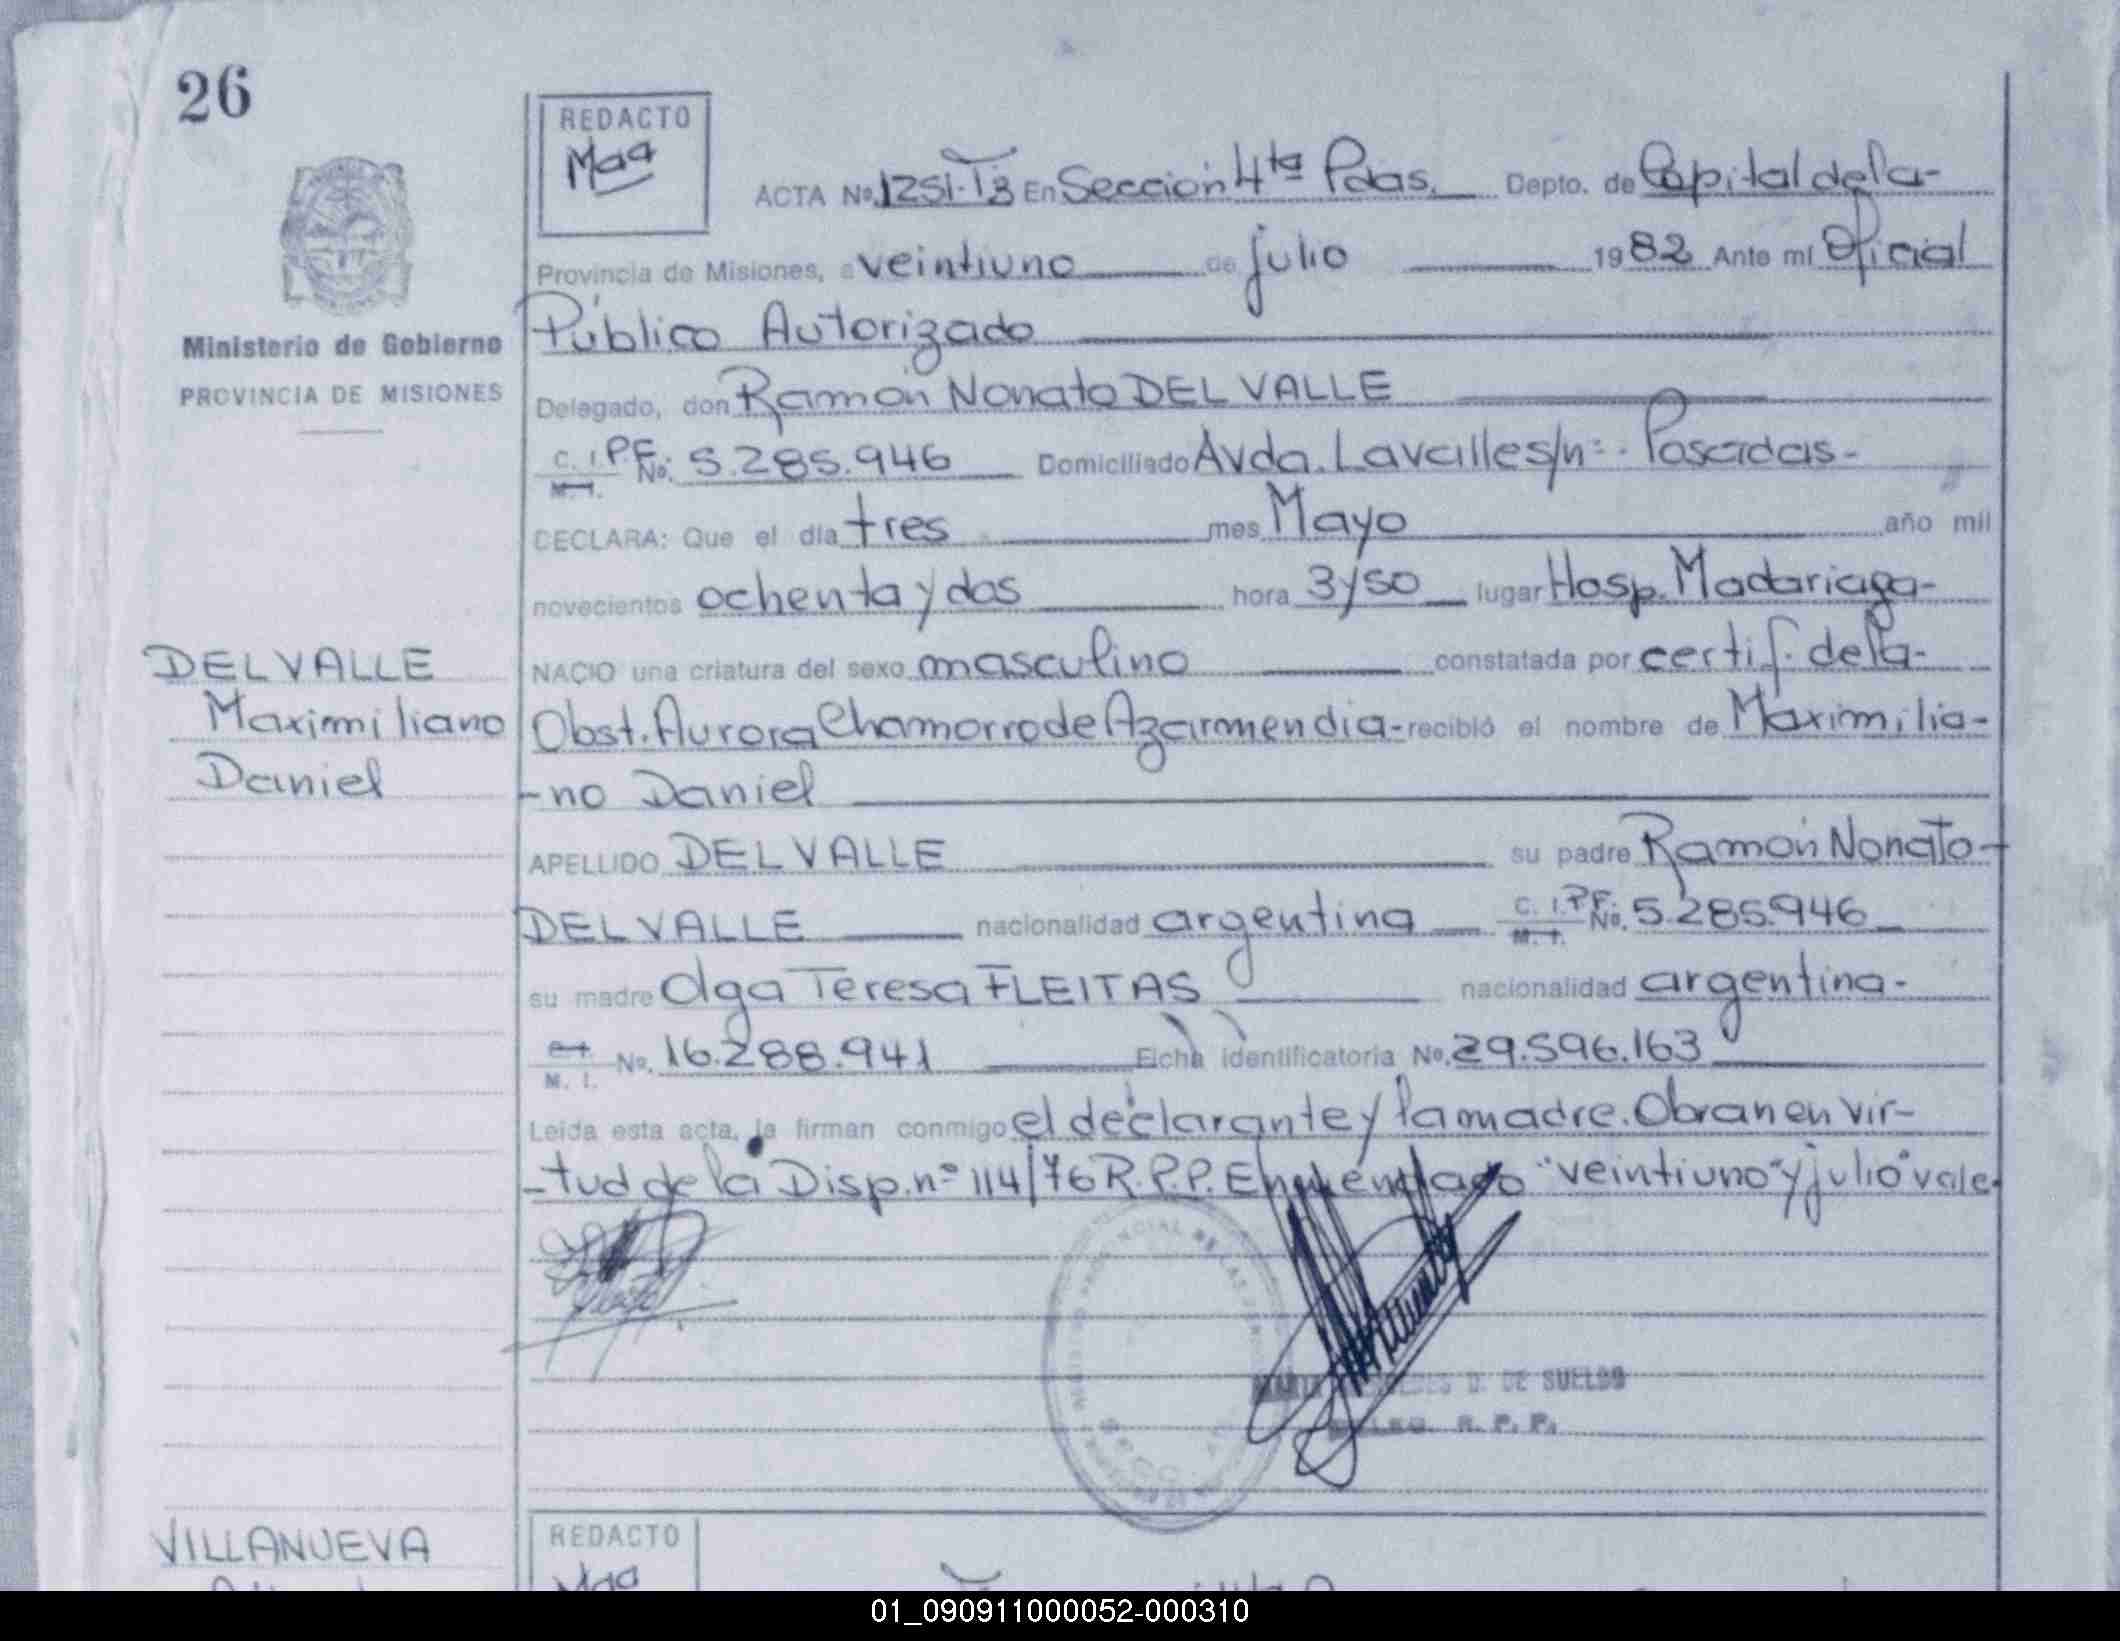 26
REDACTO
Maa
ACTA No. 1251-T3 En Sección 4ta Pdas. Depto. de Capital de la-
Provincia de Misiones, a veintiuno de julio 1982 Ante mí Oficial
Ministerio de Gobierno
PROVINCIA DE MISIONES
Público Autorizado
Delegado, don Ramón Nonato DEL VALLE
C. I. P.F. No. 5.285.946 Domiciliado Avda. Lavalle s/nº-. Posadas-
M. I.
DECLARA: Que el día tres mes Mayo año mil
novecientos ochenta y dos hora 3y50 lugar Hosp. Madariaga-
NACIO una criatura del sexo masculino constatada por certif. de la-
Obst. Aurora Chamorro de Azarmendia- recibió el nombre de Maximilia-
-no Daniel
DEL VALLE
Maximiliano
Daniel
APELLIDO DEL VALLE su padre Ramón Nonato-
DEL VALLE nacionalidad argentina C. I. P.F. No. 5.285.946
M. I.
su madre Olga Teresa FLEITAS nacionalidad argentina-
M. I. No. 16.288.941 Ficha identificatoria No. 29.596.163
Leída esta acta, la firman conmigo el declarante y la madre. Obran en vir-
-tud de la Disp. nº 114/76 R.P.P. Enmendado "veintiuno" y "julio" vale.
D. DE SUELDO
R. P. P.
VILLANUEVA
REDACTO
Maa
01_090911000052-000310